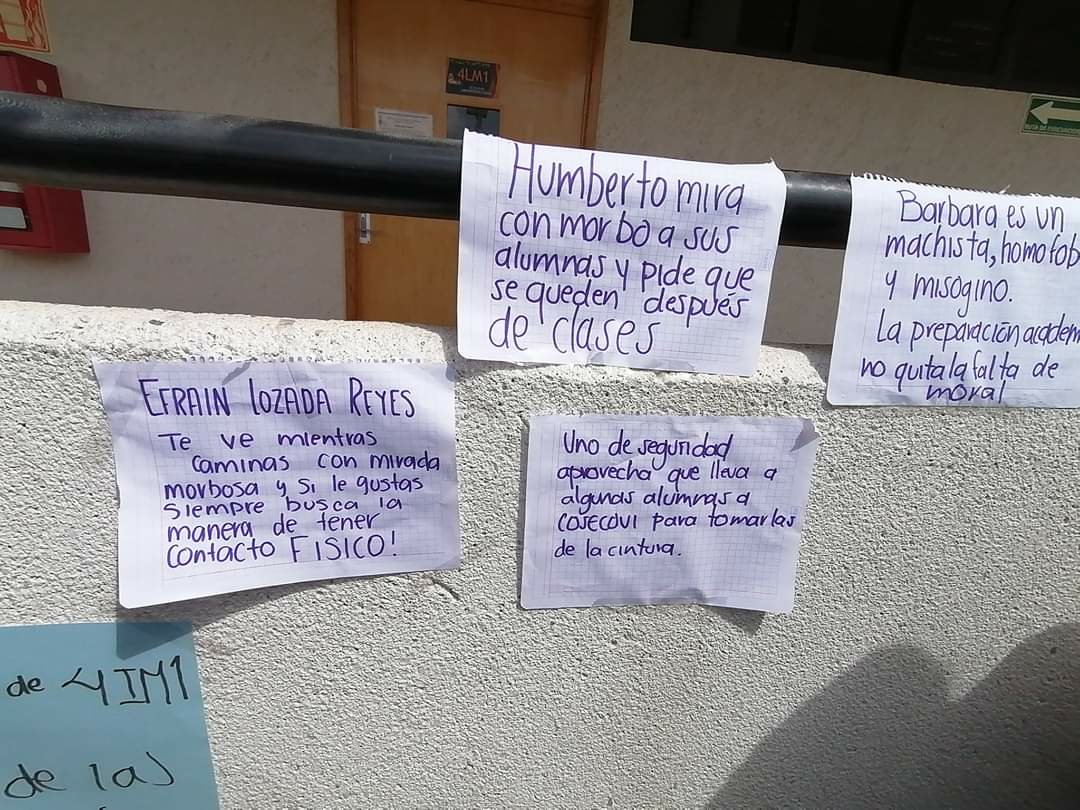 4LM1
Humberto mira
con morbo a sus
alumnas y pide que
se queden después
de clases
Barbara es un
machista, homofob
y misogino.
La preparación academ
no quita la falta de
moral
EFRAIN LOZADA REYES
Te ve mientras
caminas con mirada
morbosa y si le gustas
siempre busca la
manera de tener
contacto FISICO!
Uno de seguridad
aprovecha que lleva a
algunas alumnas a
COSECOVI para tomarlas
de la cintura.
de 4IM1
de las